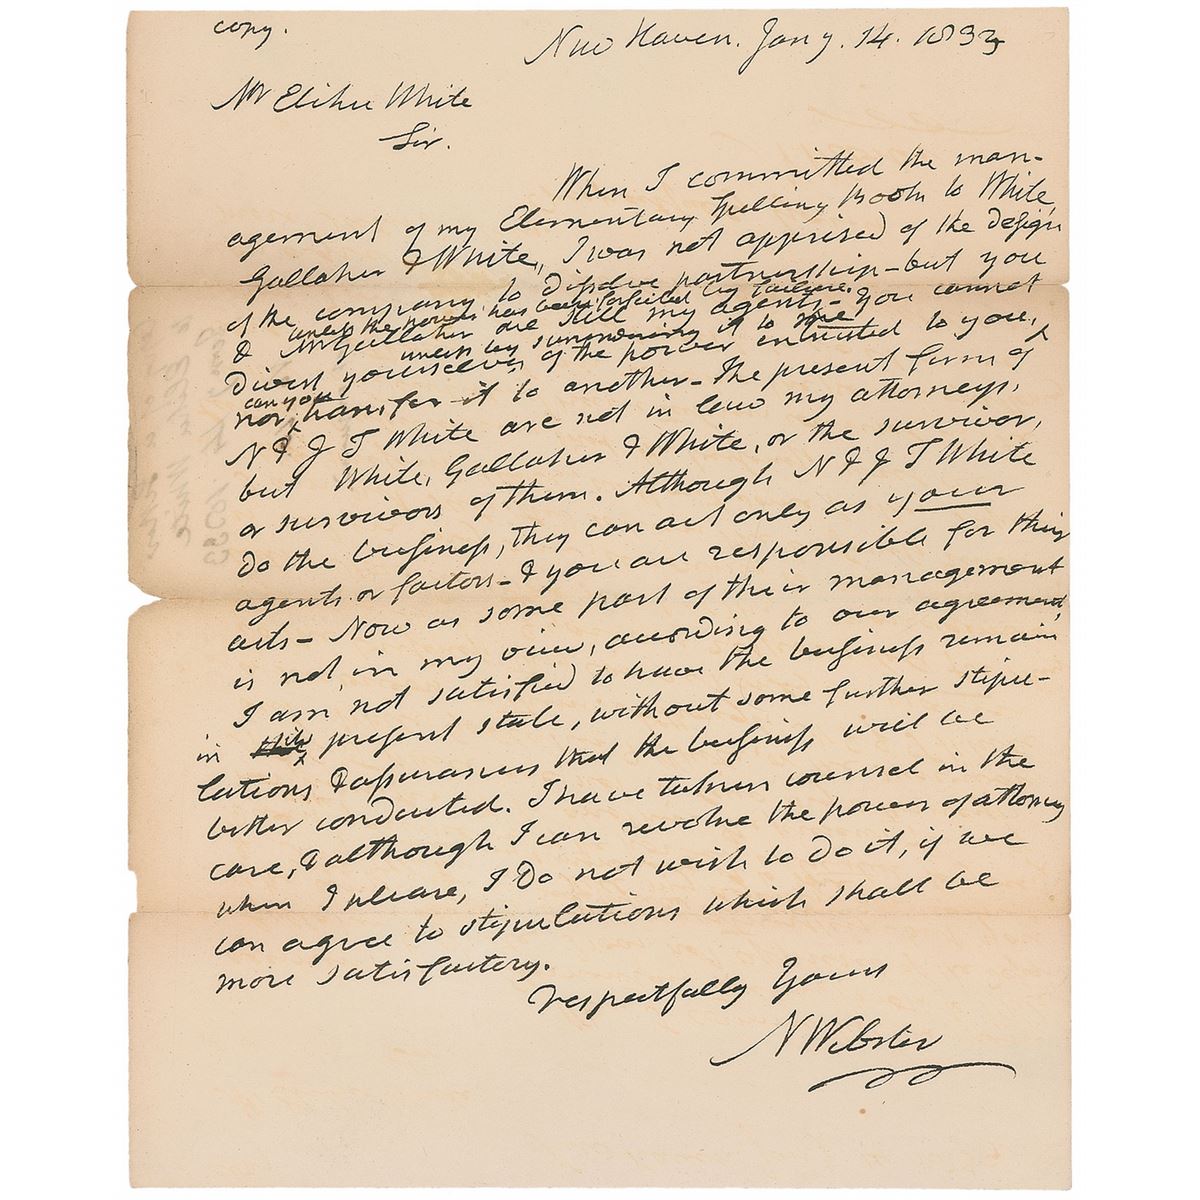 copy.
New Haven. Jany. 14. 1833
Mr Elihu White
Sir.
When I committed the man-
agement of my Elementary Spelling Book to White,
Gallaher & White, I was not apprised of the design
of the company to dissolve partnership - but you
unless the power has been forfeited by failure.
& Mr Gallaher are still my agents - You cannot
unless by surrendering it to me
divest yourselves of the power entrusted to you,
can you
nor transfer it to another - The present firm of
N & J & T White are not in law my attorneys,
but White, Gallaher & White, or the survivor,
or survivors of them. Although N & J & T White
do the business, they can act only as your
agents or factors - & you are responsible for their
acts - Now as some part of their management
is not, in my view, according to our agreement,
I am not satisfied to have the business remain
in its present state, without some further stipu-
lations & assurances that the business will be
better conducted. I have taken counsel in the
case, & although I can revoke the power of attorney
when I please, I do not wish to do it, if we
can agree to stipulations which shall be
more satisfactory.
Respectfully Yours
N Webster